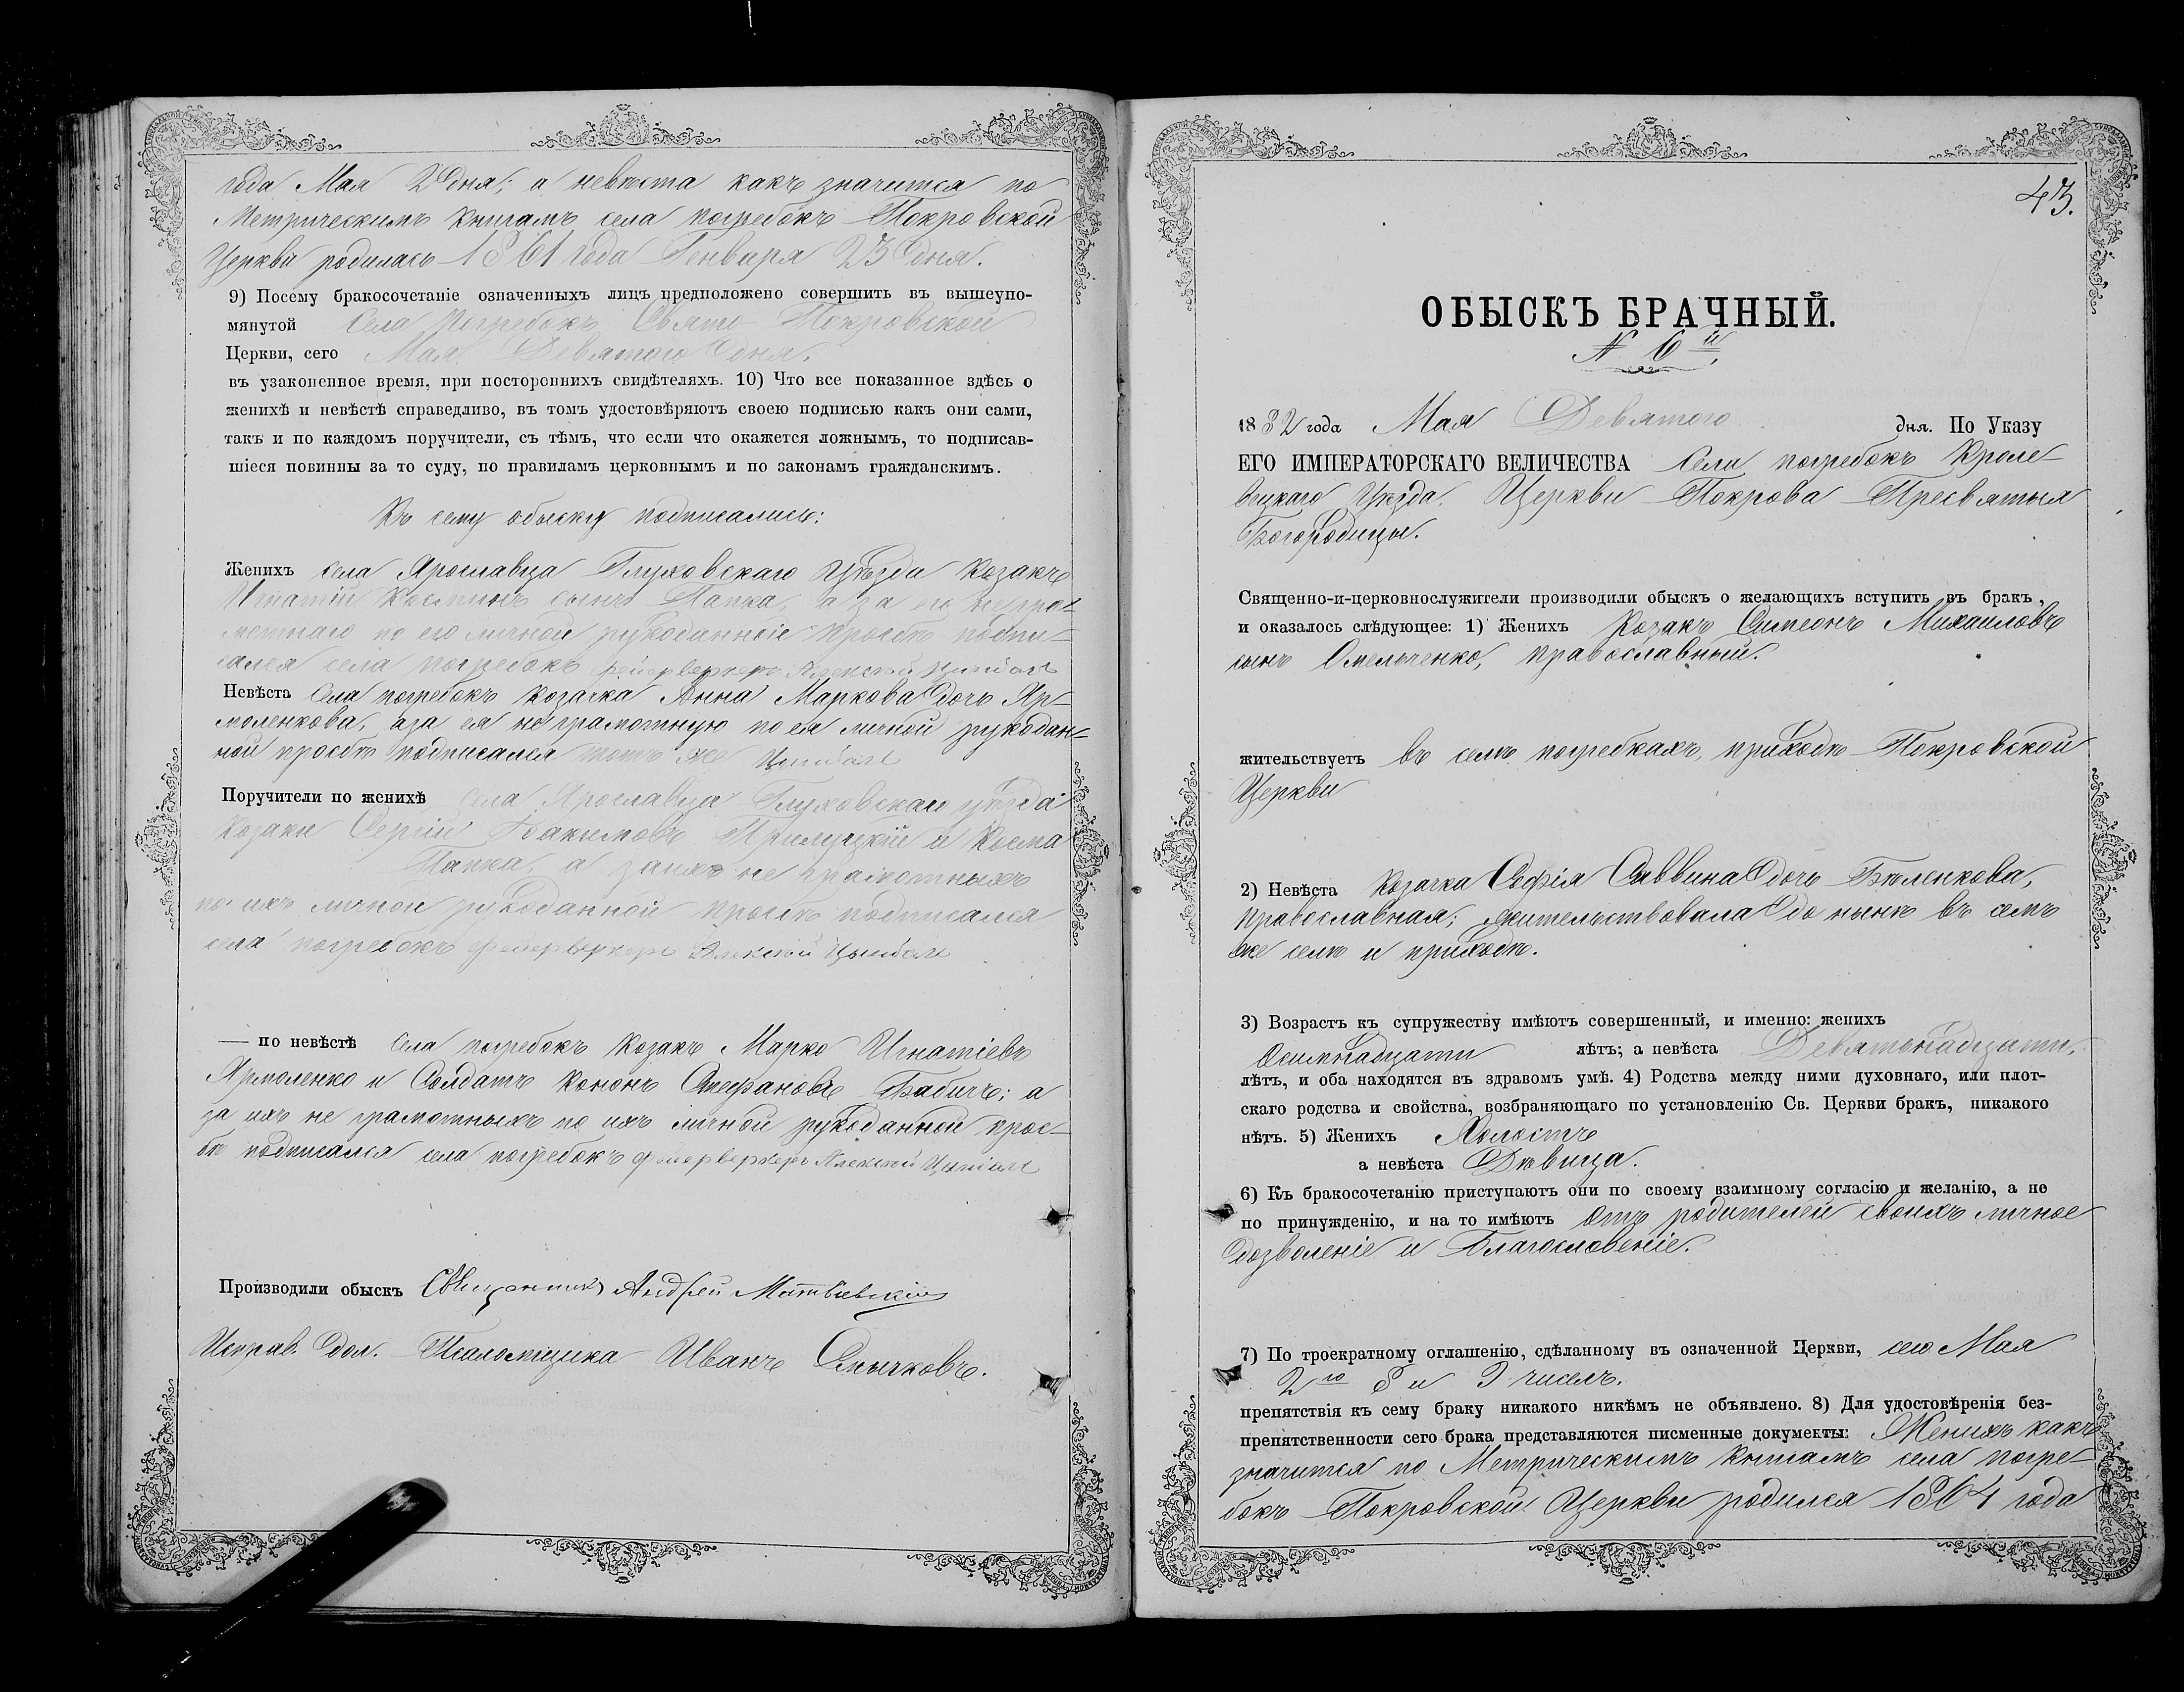 года Мая 2 дня; а невѣста какъ значится по
Метрическимъ книгамъ села погребокъ Покровской
Церкви родилась 1861 года Генваря 23 дня.
9) Посему бракосочетаніе означенныхъ лицъ предположено совершить въ вышеупо-
мянутой села погребокъ Свято Покровской
Церкви, сего Мая Девятого дня.
въ узаконенное время, при постороннихъ свидѣтеляхъ. 10) Что все показанное здѣсь о
женихѣ и невѣстѣ справедливо, въ томъ удостовѣряютъ своею подписью какъ они сами,
такъ и по каждомъ поручители, съ тѣмъ, что если что окажется ложнымъ, то подписав-
шіеся повинны за то суду, по правиламъ церковнымъ и по законамъ гражданскимъ.
Къ сему обыску подписались:
Женихъ села Ярославца Глуховскаго Уѣзда козакъ
Игнатій Косминъ сынъ Папка, а за его негра-
мотнаго по его личной рукоданной просьбѣ подпи-
сался села погребокъ фейерверкеръ Алексѣй
Невѣста села погребокъ козачка Анна Маркова дочь Яр-
моленкова, а за ея не грамотную по ея личной рукодан-
ной просьбѣ подписался тотъ же
Поручители по женихѣ села Ярославца Глуховскаго уѣзда
козаки Сергій Прилуцкій и Косма
Папка, а за ихъ не грамотныхъ
по ихъ личной рукоданной просьбѣ подписался
села погребокъ фейерверкеръ Алексѣй
— по невѣстѣ села погребокъ козакъ Марко Игнатіевъ
Ярмоленко и Солдатъ Кононъ Стефановъ Бабичъ; а
за ихъ не грамотныхъ по ихъ личной рукоданной прос-
бѣ подписался села погребокъ фейерверкеръ Алексѣй
Производили обыскъ Священникъ Андрей Матвіевскій
Исправ. дол. Псаломщика Иванъ Смычковъ.
43.
ОБЫСКЪ БРАЧНЫЙ.
N 6й
1882 года Мая Девятого дня. По Указу
ЕГО ИМПЕРАТОРСКАГО ВЕЛИЧЕСТВА села погребокъ Кроле-
вецкаго Уѣзда Церкви Покрова Пресвятыя
Богородицы.
Священно-и-церковнослужители производили обыскъ о желающихъ вступить въ бракъ,
и оказалось слѣдующее: 1) Женихъ Козакъ Симеонъ Михаиловъ
сынъ Омельченко, православный.
жительствуетъ въ селѣ погребкахъ, приходѣ Покровской
Церкви
2) Невѣста козачка Софія Саввина дочь Бѣленкова,
православная; жительствовала до нынѣ въ семъ
же селѣ и приходѣ.
3) Возрастъ къ супружеству имѣютъ совершенный, и именно: женихъ
Осимнадцати лѣтъ; а невѣста Девятнадцати,
лѣтъ, и оба находятся въ здравомъ умѣ. 4) Родства между ними духовнаго, или плот-
скаго родства и свойства, возбраняющаго по установленію Св. Церкви бракъ, никакого
нѣтъ. 5) Женихъ Холостъ
а невѣста Дѣвица.
6) Къ бракосочетанію приступаютъ они по своему взаимному согласію и желанію, а не
по принужденію, и на то имѣютъ отъ родителей своихъ личное
дозволеніе и Благословеніе.
7) По троекратному оглашенію, сдѣланному въ означенной Церкви, сего Мая
2го 8 и 9 числъ.
препятствія къ сему браку никакого никѣмъ не объявлено. 8) Для удостовѣренія без-
препятственности сего брака представляются писменные документы: Женихъ какъ
значится по Метрическимъ книгамъ села погре-
бокъ Покровской Церкви родился 1864 года